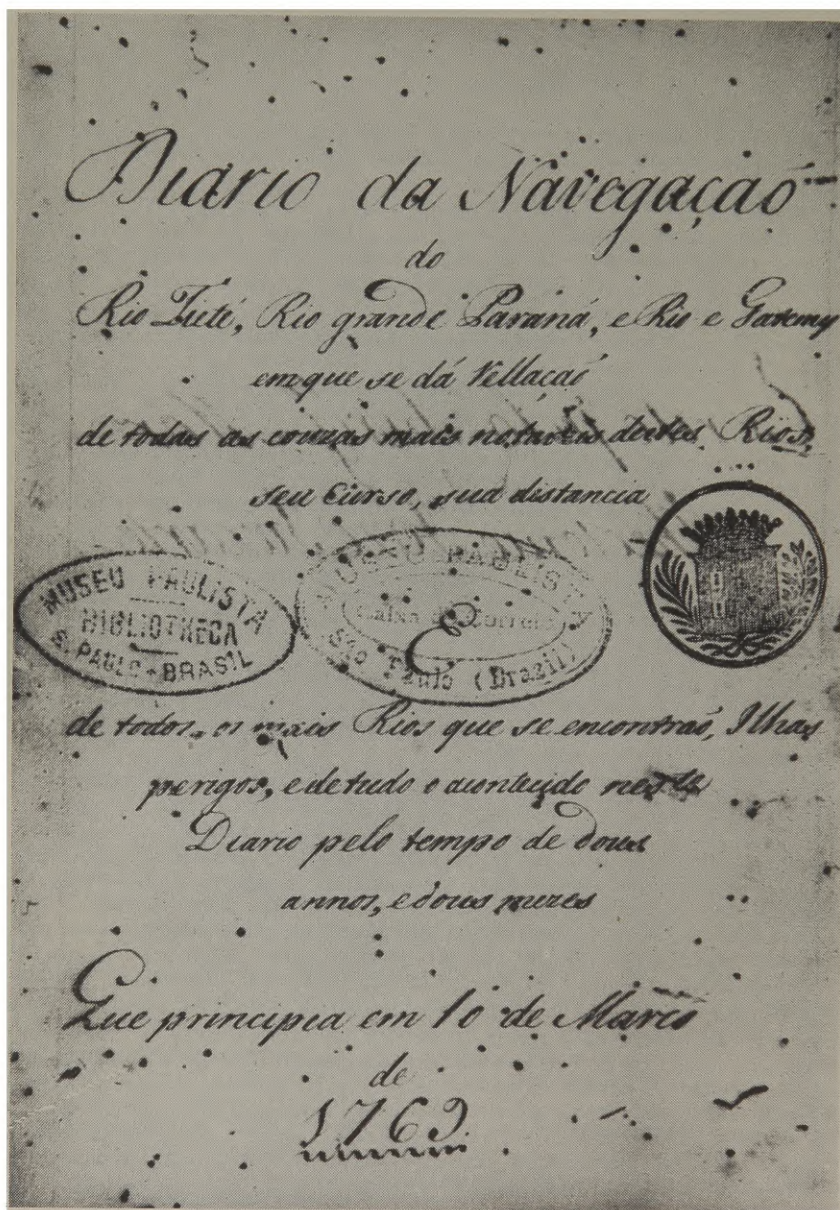 Diario da Navegaçaõ
do
Rio Tieté, Rio grande Paraná, e Rio e Gatemy
em que se dá Rellaçaõ
de todas as couzas mais notaveis destes Rios,
seu curso, sua distancia
MUSEU PAULISTA
BIBLIOTHECA
S. PAULO + BRASIL
MUSEU PAULISTA
Caixa do Correio
São Paulo (Brazil)
E
de todos, os mais Rios que se encontraõ, Ilhas
perigos, e de tudo o acontecido neste
Diario pelo tempo de dous
annos, e dous mezes
Que principia em 10 de Março
de
1769